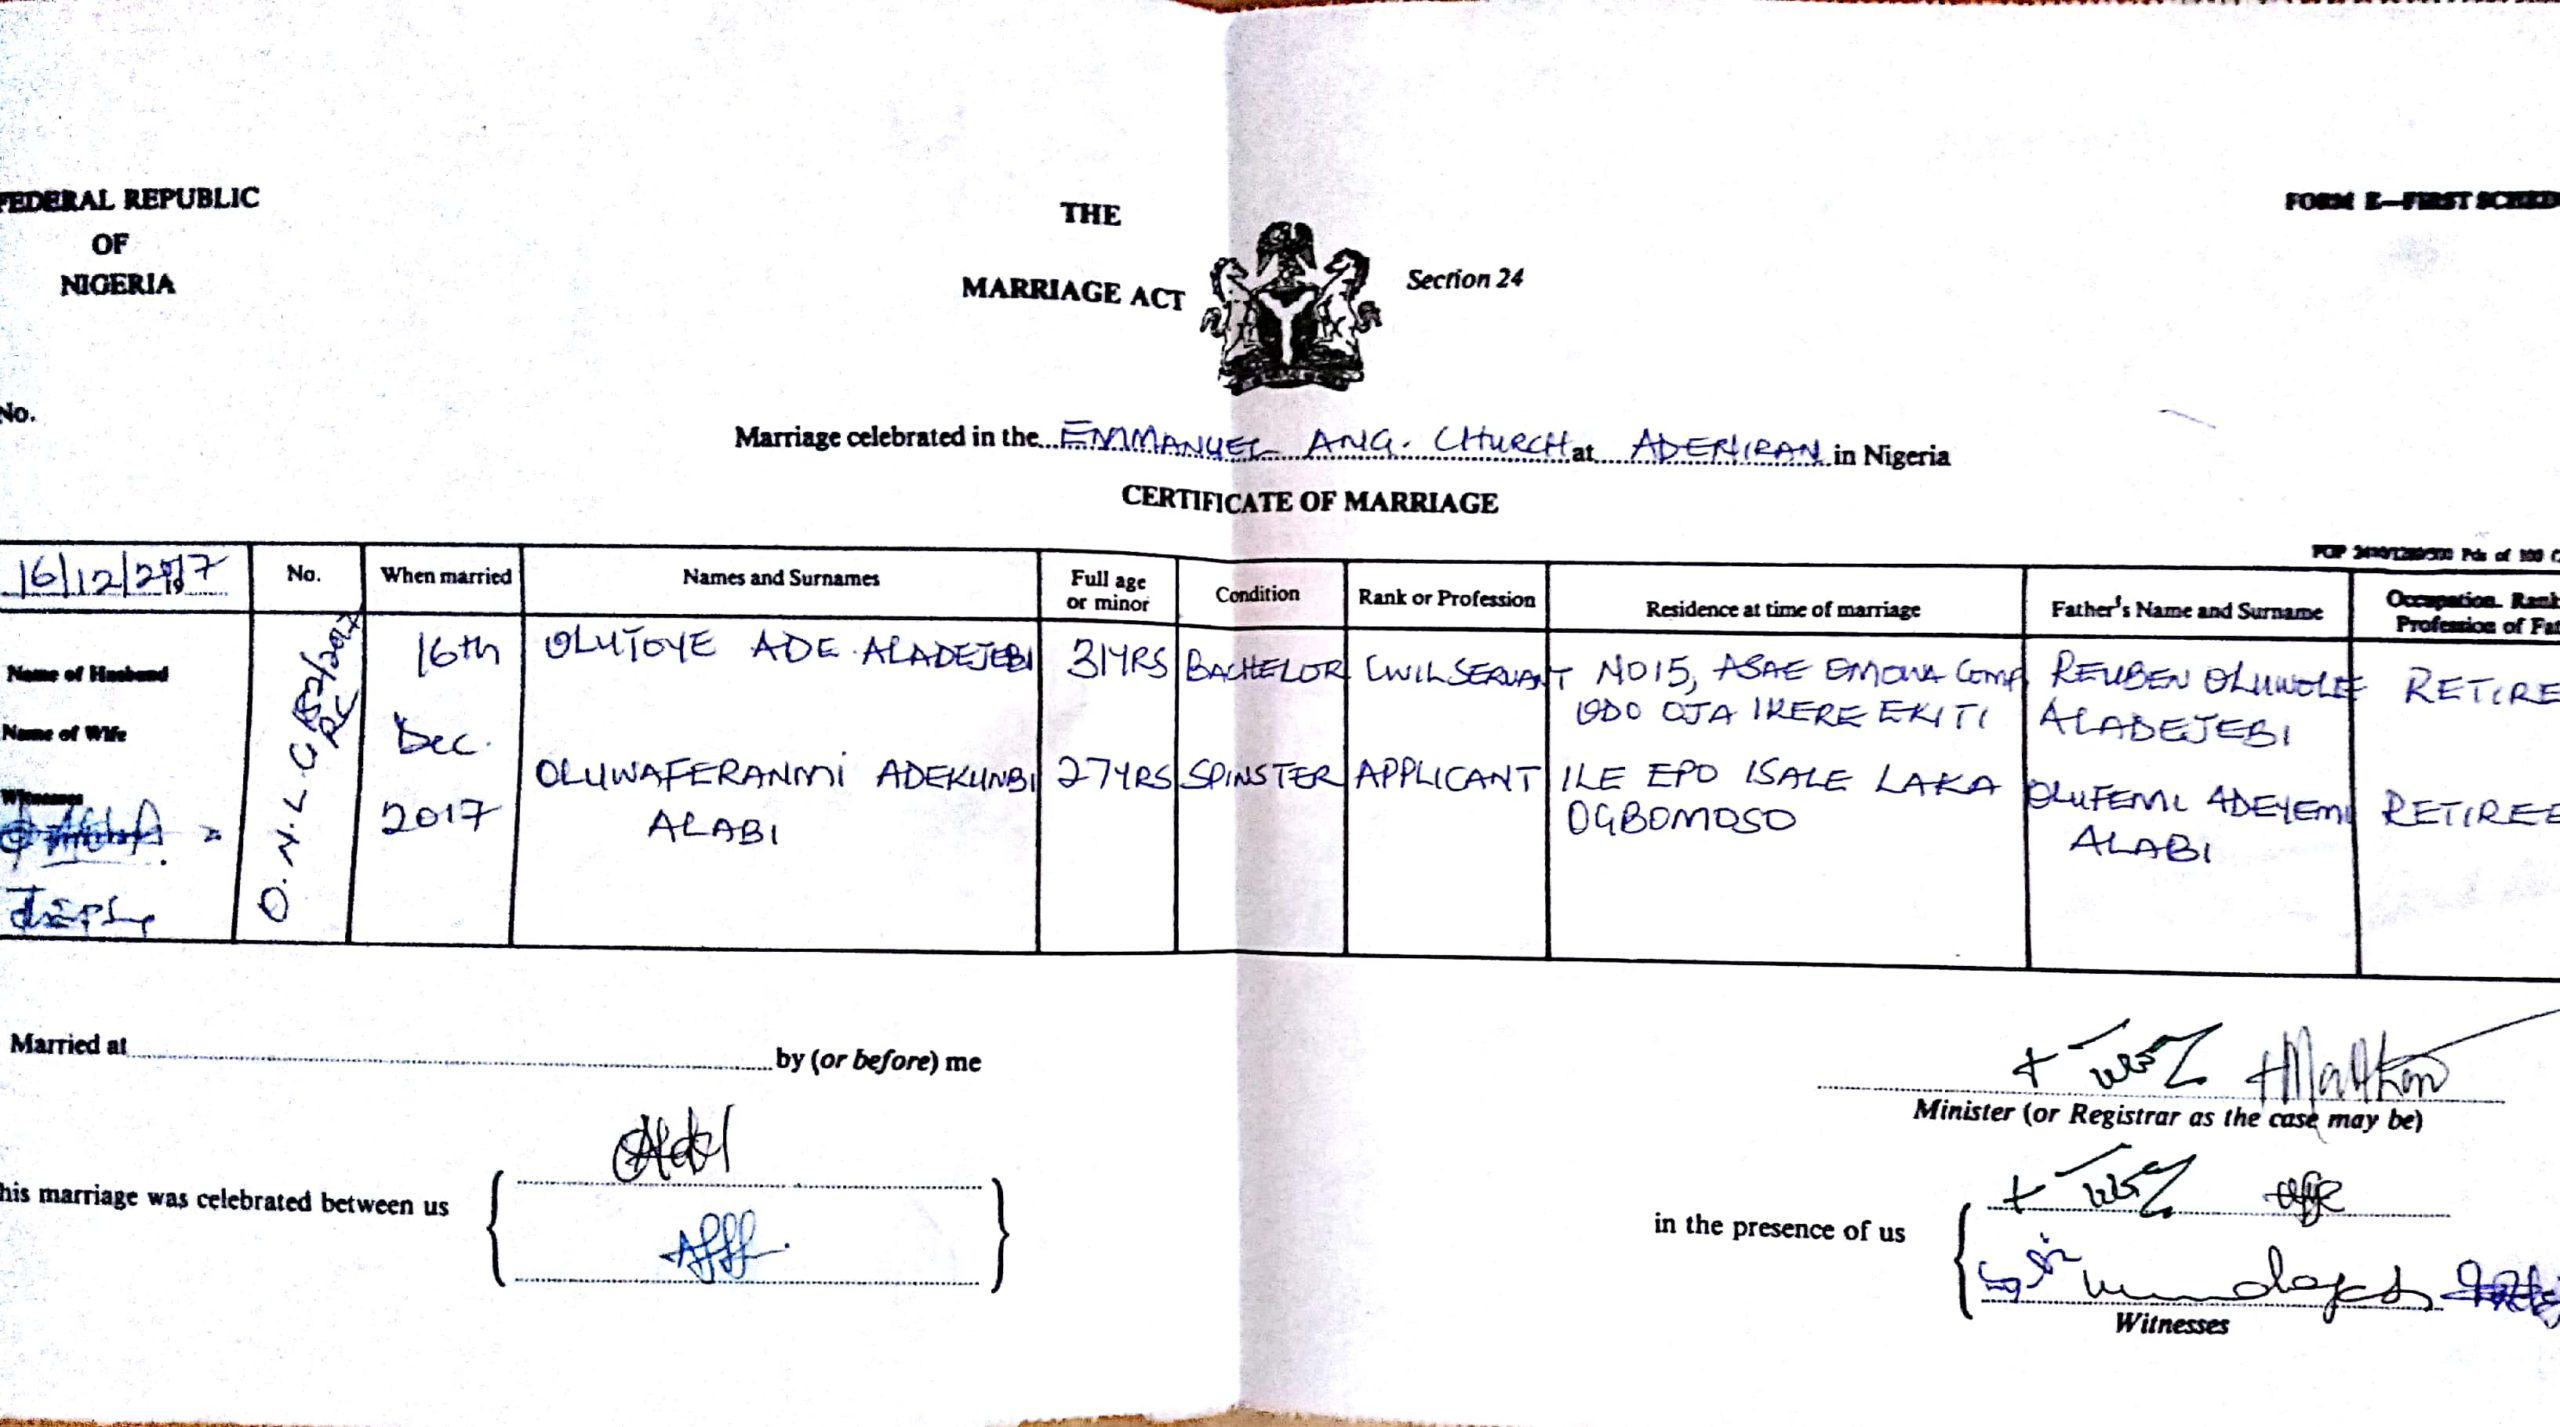 FEDERAL REPUBLIC
OF
NIGERIA
THE
MARRIAGE ACT
Section 24
FORM E—FIRST SCHED
No.
Marriage celebrated in the EMMANUEL ANG. CHURCH at ADENIRAN in Nigeria
CERTIFICATE OF MARRIAGE
Pds of 100
16/12/2017 No. When married Names and Surnames Full age or minor Condition Rank or Profession Residence at time of marriage Father's Name and Surname Occupation. Rank Profession of Fat
Name of Husband
O.N.L.G
16th Dec. 2017
OLUTOYE ADE ALADEJEBI 31YRS BACHELOR CIVIL SERVANT NO15, ASAE EMOWA COMP REUBEN OLUWOLE RETIRE
ODO OJA IKERE EKITI ALADEJEBI
Name of Wife
OLUWAFERANMI ADEKUNBI 27YRS SPINSTER APPLICANT ILE EPO ISALE LAKA OLUFEMI ADEYEMI RETIREE
ALABI OGBOMOSO ALABI
Witnesses
Married at by (or before) me
Minister (or Registrar as the case may be)
his marriage was celebrated between us
in the presence of us
Witnesses